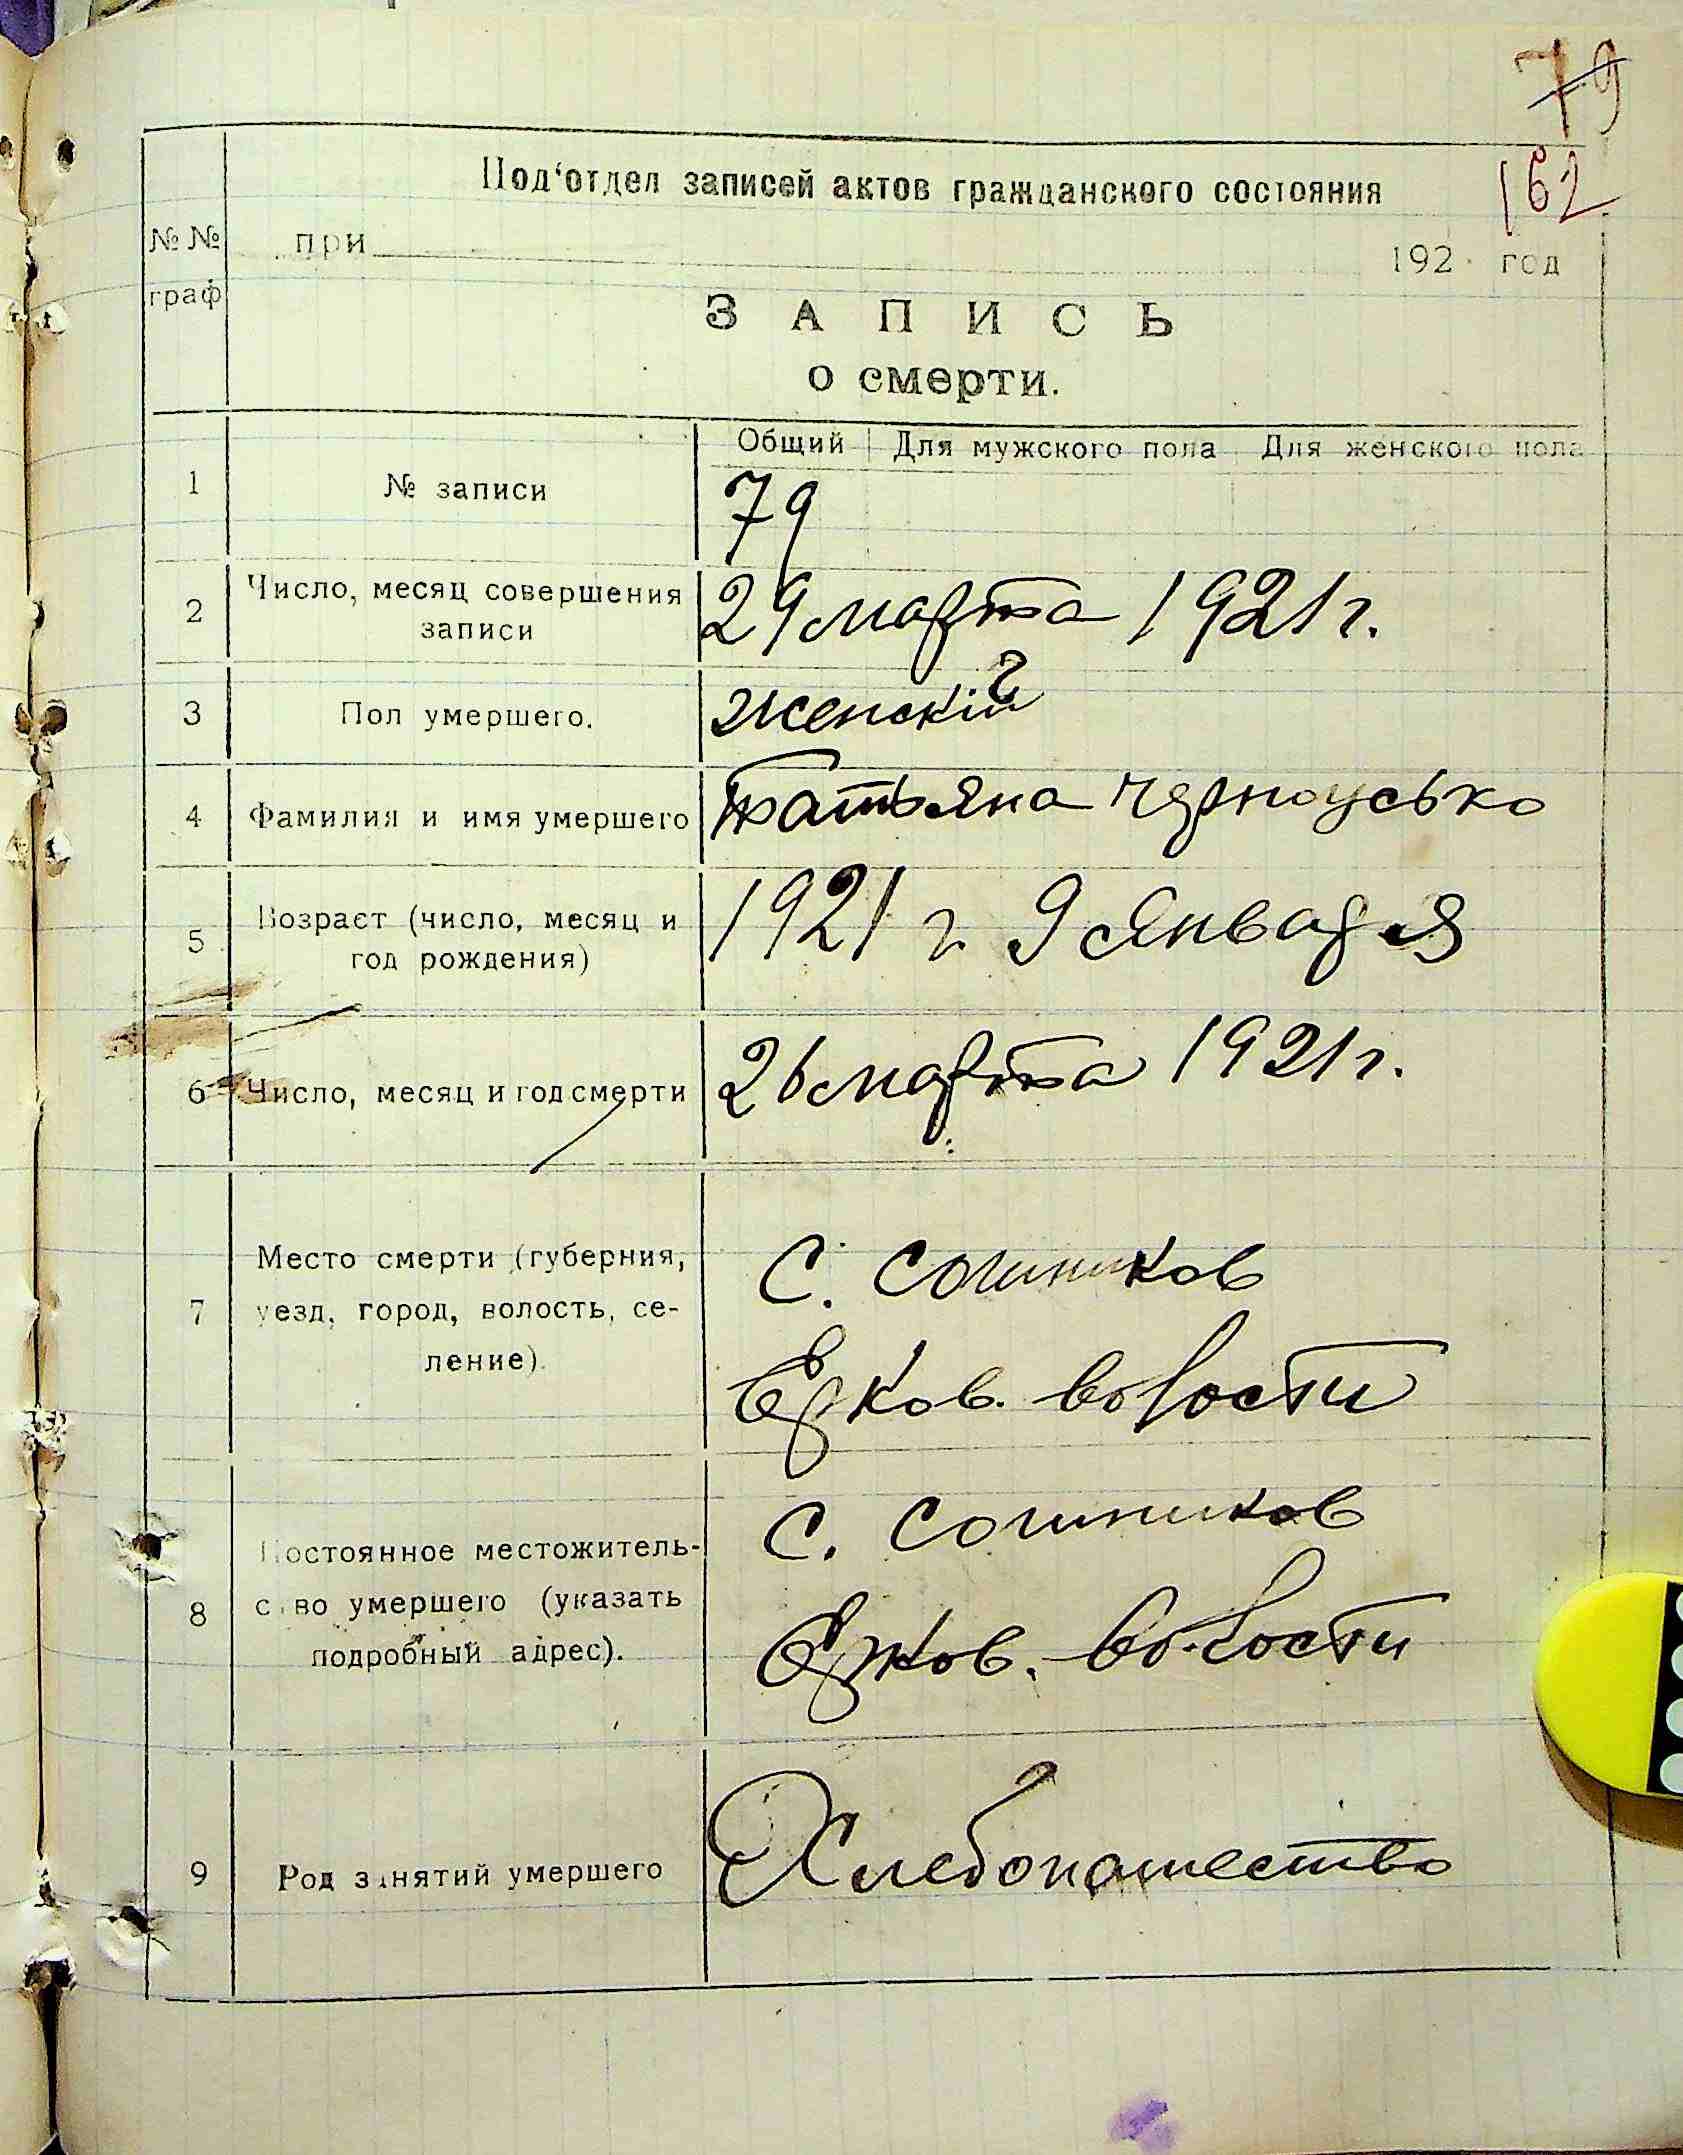 79
162
Под'отдел записей актов гражданского состояния
№ № граф
при 192 год
ЗАПИСЬ
о смерти.
Общий Для мужского пола Для женского пола
1 № записи 79
2 Число, месяц совершения записи 29 марта 1921 г.
3 Пол умершего. Женскій
4 Фамилия и имя умершего Татьяна Черноусько
5 Возраст (число, месяц и год рождения) 1921 г. 9 Января
6 Число, месяц и год смерти 26 марта 1921 г.
7 Место смерти (губерния, уезд, город, волость, се-
ление). С. Сошников
Ерков. волости
8 Постоянное местожитель-
ство умершего (указать подробный адрес). С. Сошников
Ерков. волости
9 Род занятий умершего Хлебопашество